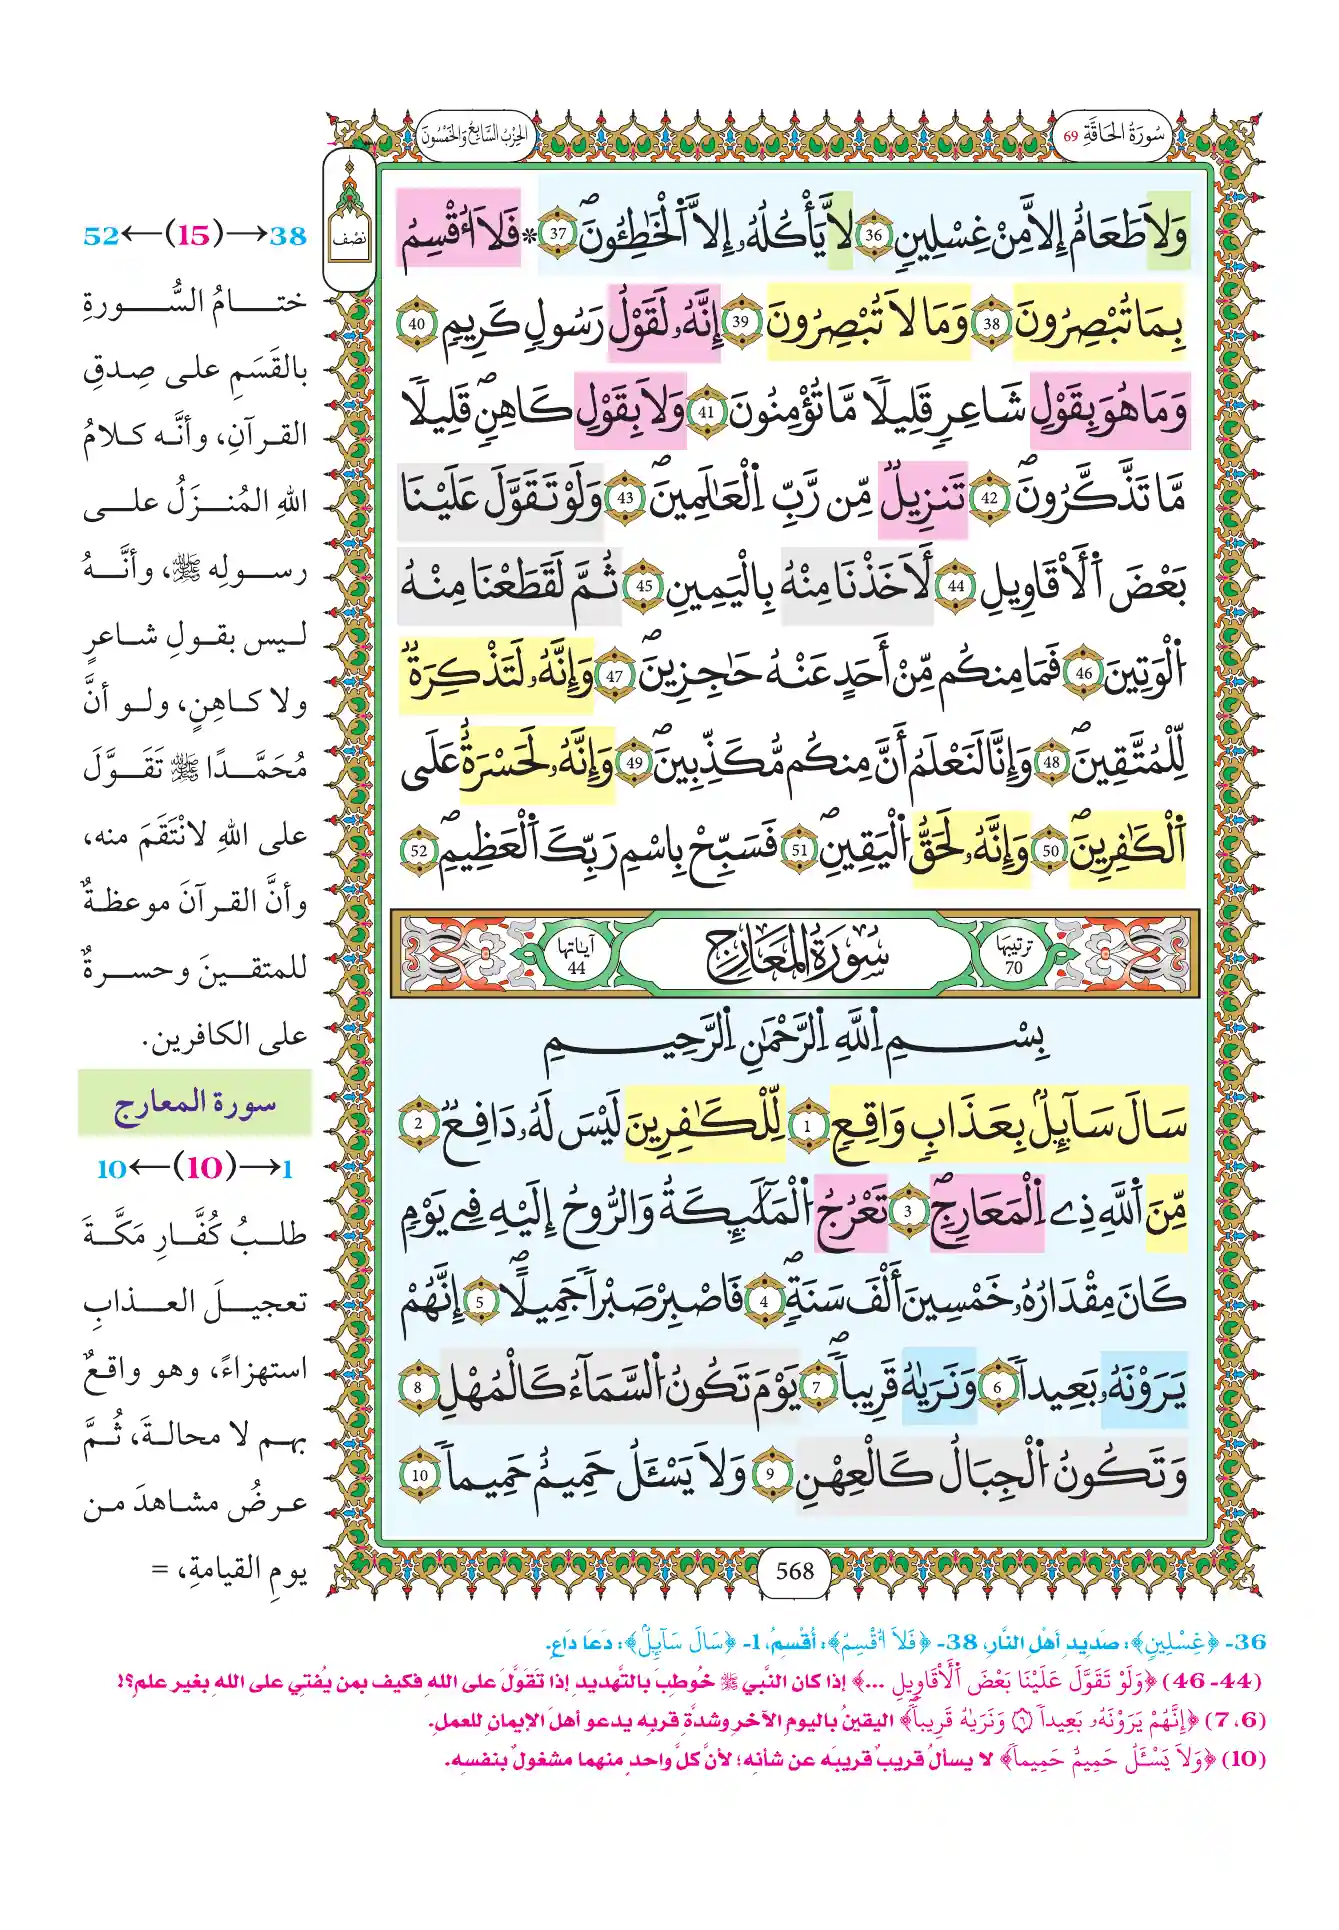 سُورَةُ الحَاقَّةِ 69
الحِزْبُ السَّابِعُ وَالخَمْسُونَ
نصْف
وَلَا طَعَامٌ إِلَّا مِنْ غِسْلِينٍ 36 لَّا يَأْكُلُهُۥٓ إِلَّا اَ۬لْخَٰطِـُٔونَۖ 37 * فَلَآ أُقْسِمُ
بِمَا تُبْصِرُونَ 38 وَمَا لَا تُبْصِرُونَ 39 إِنَّهُۥ لَقَوْلُ رَسُولٍ كَرِيمٍ 40
وَمَا هُوَ بِقَوْلِ شَاعِرٍ قَلِيلًا مَّا تُؤْمِنُونَ 41 وَلَا بِقَوْلِ كَاهِنٍۖ قَلِيلًا
مَّا تَذَّكَّرُونَۖ 42 تَنزِيلٌ مِّن رَّبِّ اِ۬لْعَٰلَمِينَۖ 43 وَلَوْ تَقَوَّلَ عَلَيْنَا
بَعْضَ اَ۬لْأَقَاوِيلِ 44 لَأَخَذْنَا مِنْهُ بِالْيَمِينِ 45 ثُمَّ لَقَطَعْنَا مِنْهُ
اُ۬لْوَتِينَ 46 فَمَا مِنكُم مِّنْ أَحَدٍ عَنْهُ حَٰجِزِينَۖ 47 وَإِنَّهُۥ لَتَذْكِرَةٌ
لِّلْمُتَّقِينَۖ 48 وَإِنَّا لَنَعْلَمُ أَنَّ مِنكُم مُّكَذِّبِينَۖ 49 وَإِنَّهُۥ لَحَسْرَةٌ عَلَى
اَ۬لْكَٰفِرِينَۖ 50 وَإِنَّهُۥ لَحَقُّ اُ۬لْيَقِينِۖ 51 فَسَبِّحْ بِاسْمِ رَبِّكَ اَ۬لْعَظِيمِۖ 52
ترتيبها 70
سُورَةُ المَعَارِجِ
آياتها 44
بِسْمِ اِ۬للَّهِ اِ۬لرَّحْمَٰنِ اِ۬لرَّحِيمِ
سَالَ سَآئِلٌۢ بِعَذَابٍ وَاقِعٍ 1 لِّلْكَٰفِرِينَ لَيْسَ لَهُۥ دَافِعٌۖ 2
مِّنَ اَ۬للَّهِ ذِے اِ۬لْمَعَارِجِۖ 3 تَعْرُجُ اُ۬لْمَلَٰٓئِكَةُ وَالرُّوحُ إِلَيْهِ فِے يَوْمٍ
كَانَ مِقْدَارُهُۥ خَمْسِينَ أَلْفَ سَنَةٍۖ 4 فَاصْبِرْ صَبْراً جَمِيلًاۖ 5 إِنَّهُمْ
يَرَوْنَهُۥ بَعِيداً 6 وَنَرَيٰهُ قَرِيباًۖ 7 يَوْمَ تَكُونُ اُ۬لسَّمَآءُ كَالْمُهْلِ 8
وَتَكُونُ اُ۬لْجِبَالُ كَالْعِهْنِ 9 وَلَا يَسْـَٔلُ حَمِيمٌ حَمِيماًۖ 10
568
38→(15)←52
ختـامُ السُّورةِ
بالقَسَمِ على صِدقِ
القرآنِ، وأنَّه كلامُ
اللهِ المُنزَلُ على
رسولِه ﷺ، وأنَّهُ
ليس بقولِ شاعرٍ
ولا كاهنٍ، ولو أنَّ
مُحَمَّدًا ﷺ تَقَوَّلَ
على اللهِ لانْتَقَمَ منه،
وأنَّ القرآنَ موعظةٌ
للمتقينَ وحسرةٌ
على الكافرين.
سورة المعارج
1→(10)←10
طلبُ كُفَّارِ مَكَّةَ
تعجيلَ العذابِ
استهزاءً، وهو واقعٌ
بهم لا محالةَ، ثُمَّ
عرضُ مشاهدَ من
يومِ القيامةِ، =
36- ﴿غِسْلِينٍ﴾: صَدِيدِ أهْلِ النَّارِ، 38- ﴿فَلَآ أُقْسِمُ﴾: أُقْسِمُ، 1- ﴿سَالَ سَآئِلٌ﴾: دَعَا دَاعٍ.
(44- 46) ﴿وَلَوْ تَقَوَّلَ عَلَيْنَا بَعْضَ اَ۬لْأَقَاوِيلِ ...﴾ إذا كان النَّبي ﷺ خُوطِبَ بالتَّهديدِ إذا تَقَوَّلَ على اللهِ فكيف بمن يُفتي على اللهِ بغير علمٍ؟!
(6، 7) ﴿إِنَّهُمْ يَرَوْنَهُۥ بَعِيداً ۝٦ وَنَرَيٰهُ قَرِيباًۖ﴾ اليقينُ باليومِ الآخرِ وشدَّةِ قربِه يدعو أهلَ الإيمانِ للعملِ.
(10) ﴿وَلَا يَسْـَٔلُ حَمِيمٌ حَمِيماًۖ﴾ لا يسألُ قريبٌ قريبَه عن شأنِهِ؛ لأنَّ كلَّ واحدٍ منهما مشغولٌ بنفسِهِ.